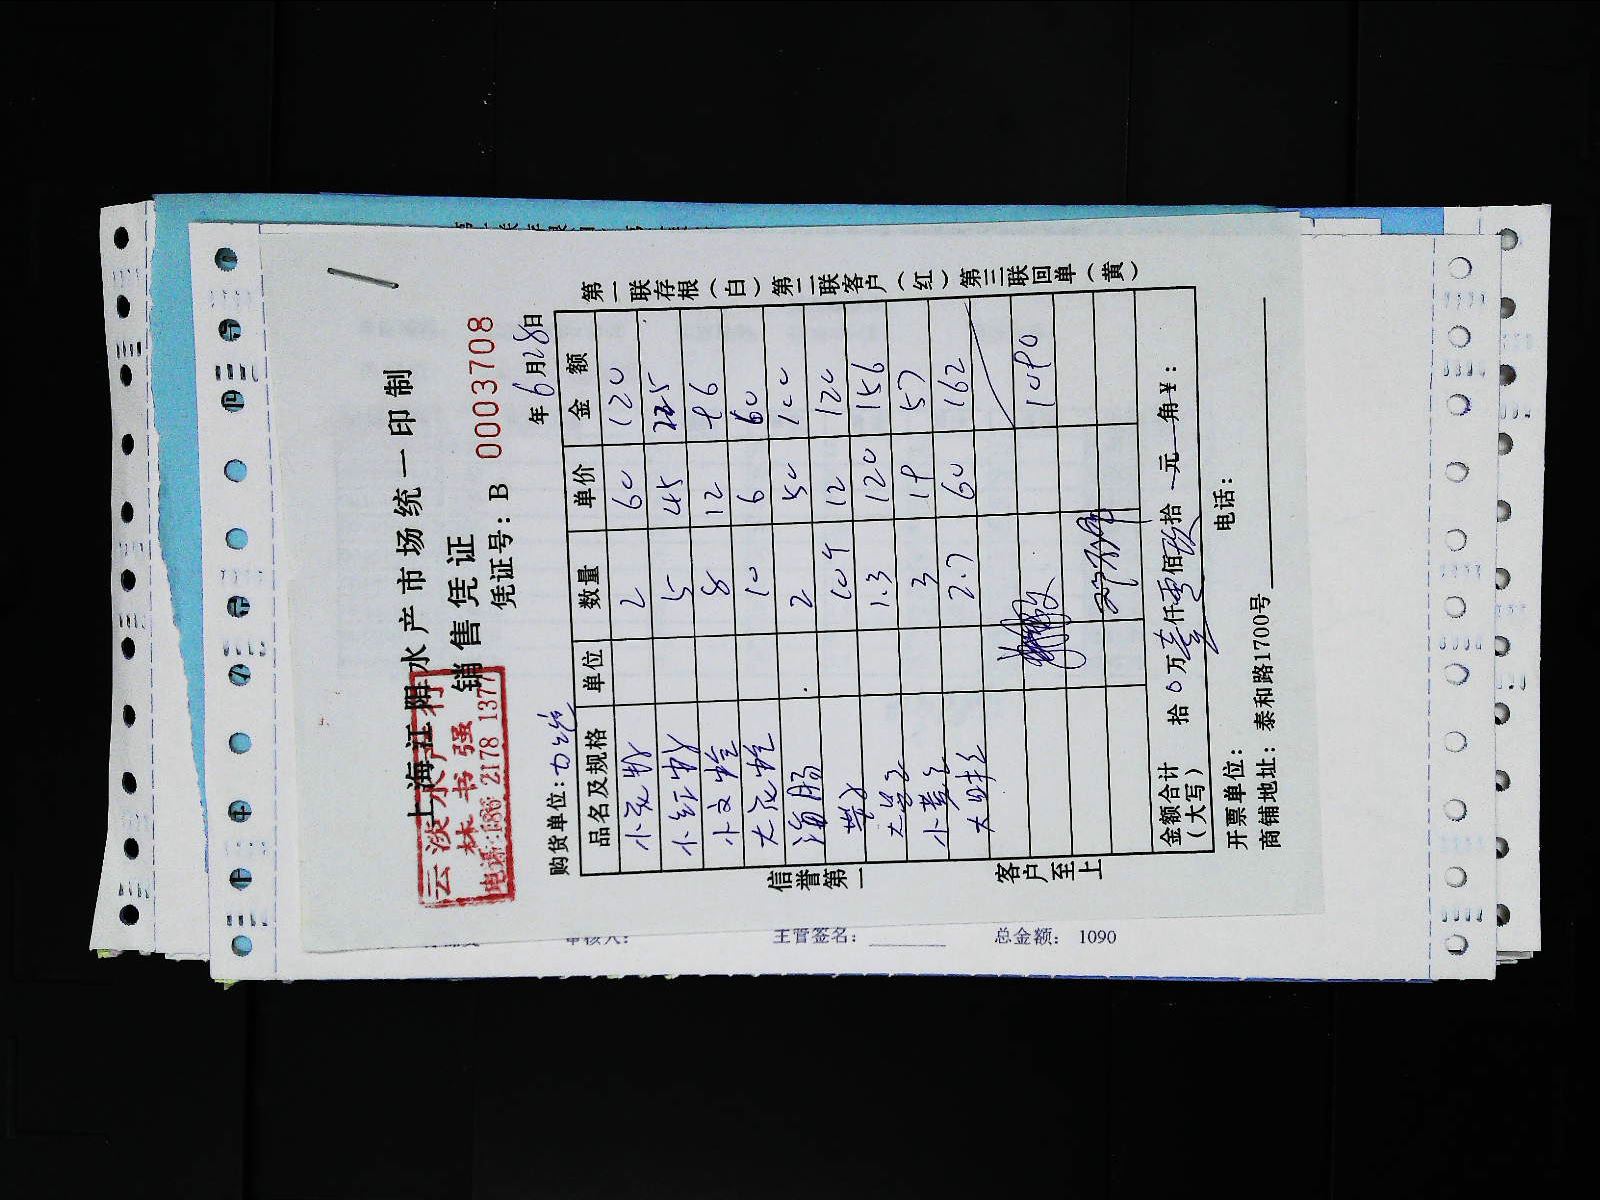 上海江阳水产市场统一印制
销售凭证
凭证号：B 0003708
云淡水产行
林书强
电话:186 2178 1377
购货单位：
年6月28日
品名及规格 单位 数量 单价 金额
2 60 120
小红 5 45 225
小文蛤 8 12 96
大花蛤 10 6 60
海肠 2 50 100
10斤 12 120
1.3 120 156
小黄 3 19 57
大 2.7 60 162
1090
金额合计
（大写）
拾0万壹仟零佰玖拾 元 角￥：
开票单位： 电话：
商铺地址：泰和路1700号
第一联存根（白）第二联客户（红）第三联回单（黄）
信誉第一
客户至上
审核人： 主管签名： 总金额： 1090